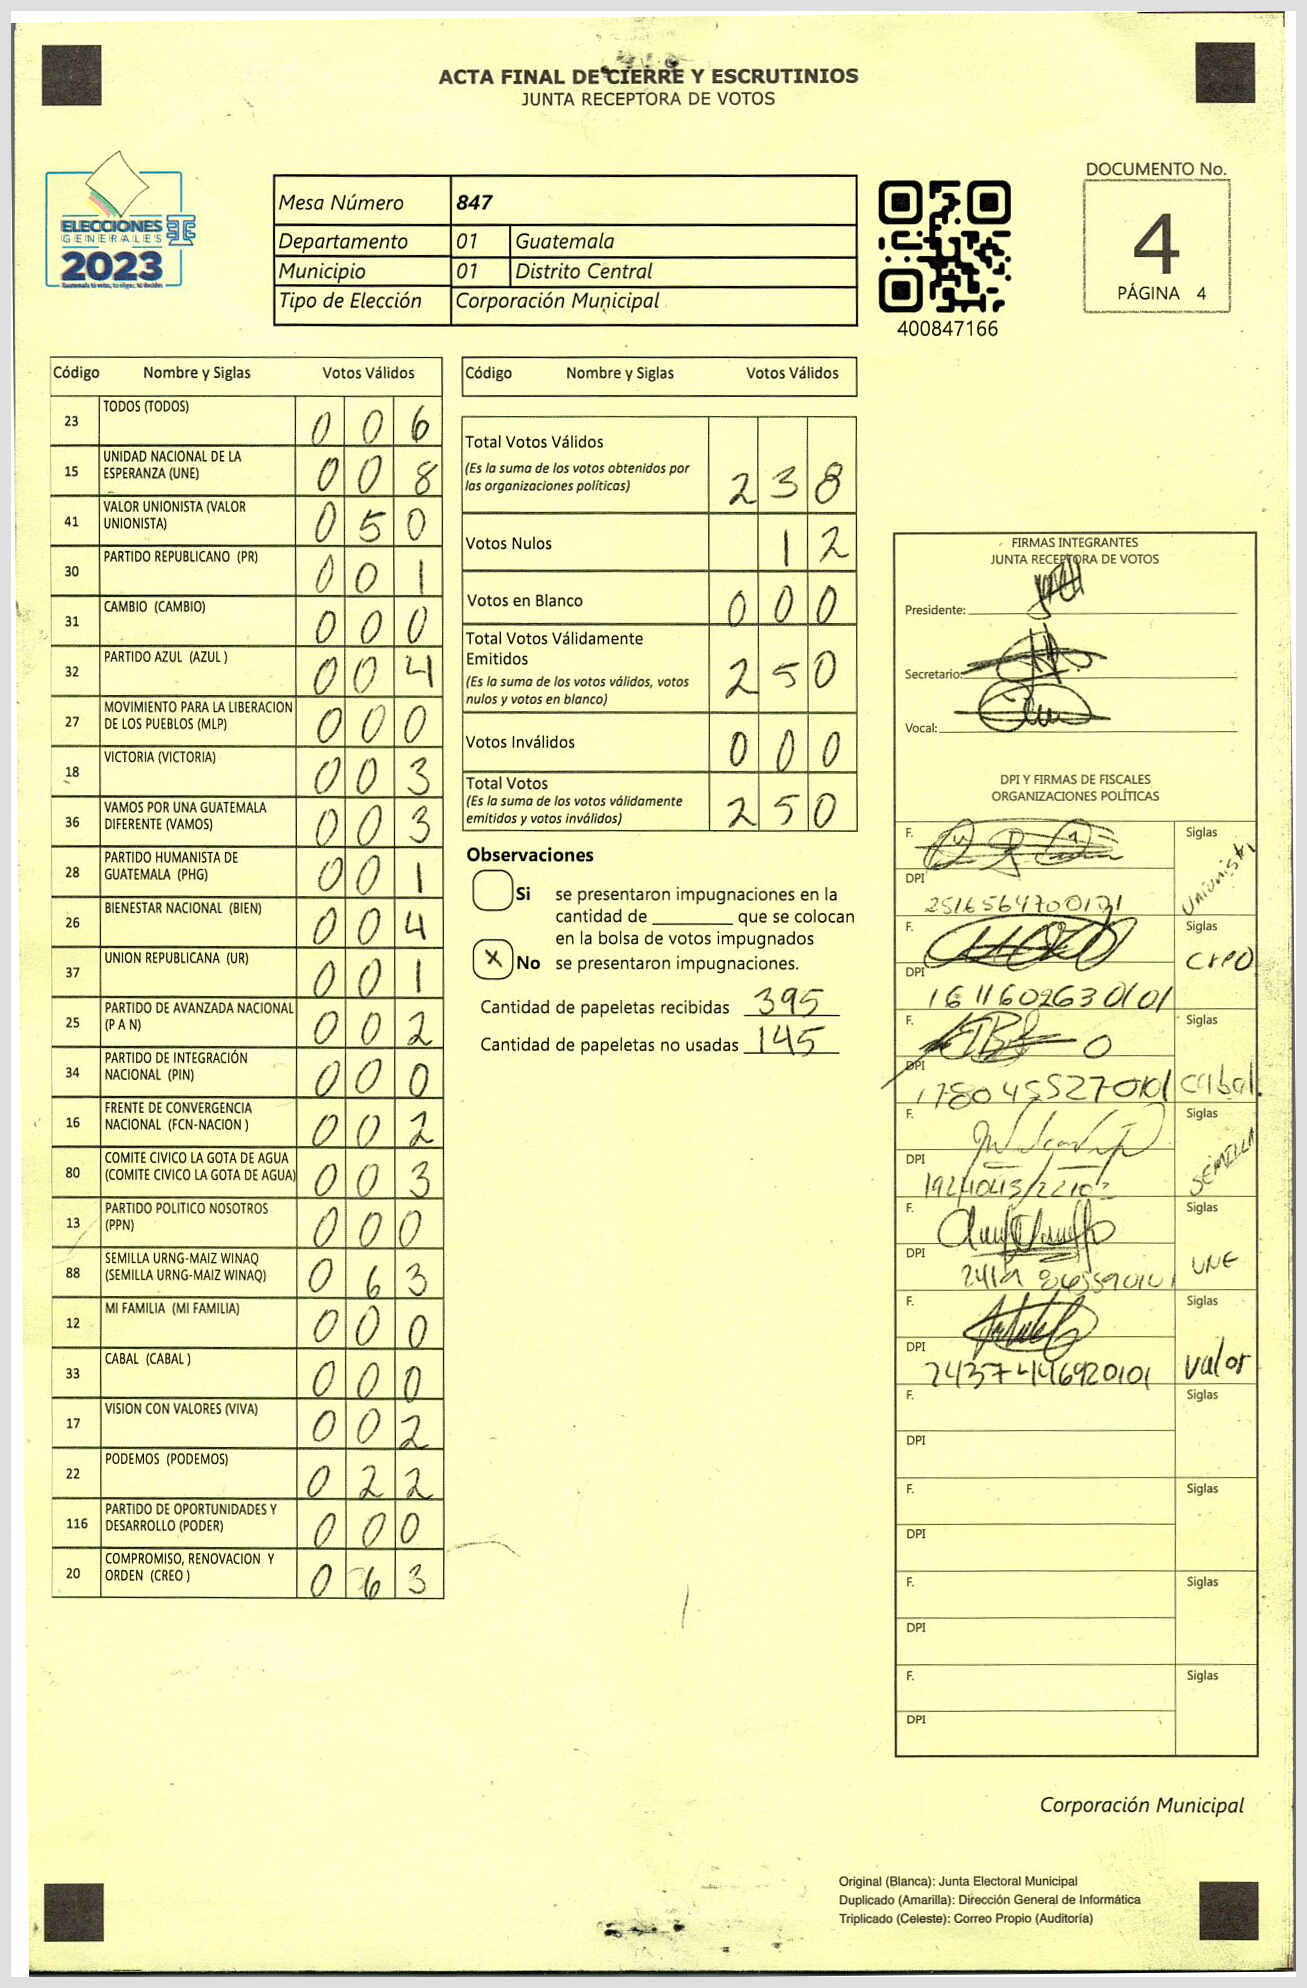 ACTA FINAL DE CIERRE Y ESCRUTINIOS
JUNTA RECEPTORA DE VOTOS
ELECCIONES
GENERALES
2023
Mesa Número 847
Departamento 01 Guatemala
Municipio 01 Distrito Central
Tipo de Elección Corporación Municipal
400847166
DOCUMENTO No.
4
PÁGINA 4
Código Nombre y Siglas Votos Válidos
23 TODOS (TODOS) 0 0 6
15 UNIDAD NACIONAL DE LA ESPERANZA (UNE) 0 0 8
41 VALOR UNIONISTA (VALOR UNIONISTA) 0 5 0
30 PARTIDO REPUBLICANO (PR) 0 0 1
31 CAMBIO (CAMBIO) 0 0 0
32 PARTIDO AZUL (AZUL ) 0 0 4
27 MOVIMIENTO PARA LA LIBERACION DE LOS PUEBLOS (MLP) 0 0 0
18 VICTORIA (VICTORIA) 0 0 3
36 VAMOS POR UNA GUATEMALA DIFERENTE (VAMOS) 0 0 3
28 PARTIDO HUMANISTA DE GUATEMALA (PHG) 0 0 1
26 BIENESTAR NACIONAL (BIEN) 0 0 4
37 UNION REPUBLICANA (UR) 0 0 1
25 PARTIDO DE AVANZADA NACIONAL (P A N) 0 0 2
34 PARTIDO DE INTEGRACIÓN NACIONAL (PIN) 0 0 0
16 FRENTE DE CONVERGENCIA NACIONAL (FCN-NACION ) 0 0 2
80 COMITE CIVICO LA GOTA DE AGUA (COMITE CIVICO LA GOTA DE AGUA) 0 0 3
13 PARTIDO POLITICO NOSOTROS (PPN) 0 0 0
88 SEMILLA URNG-MAIZ WINAQ (SEMILLA URNG-MAIZ WINAQ) 0 6 3
12 MI FAMILIA (MI FAMILIA) 0 0 0
33 CABAL (CABAL ) 0 0 0
17 VISION CON VALORES (VIVA) 0 0 2
22 PODEMOS (PODEMOS) 0 2 2
116 PARTIDO DE OPORTUNIDADES Y DESARROLLO (PODER) 0 0 0
20 COMPROMISO, RENOVACION Y ORDEN (CREO ) 0 6 3
Código Nombre y Siglas Votos Válidos
Total Votos Válidos 2 3 8
(Es la suma de los votos obtenidos por
las organizaciones políticas)
Votos Nulos 1 2
Votos en Blanco 0 0 0
Total Votos Válidamente
Emitidos 2 5 0
(Es la suma de los votos válidos, votos
nulos y votos en blanco)
Votos Inválidos 0 0 0
Total Votos 2 5 0
(Es la suma de los votos válidamente
emitidos y votos inválidos)
Observaciones
Si se presentaron impugnaciones en la
cantidad de ________ que se colocan
en la bolsa de votos impugnados
X No se presentaron impugnaciones.
Cantidad de papeletas recibidas 395
Cantidad de papeletas no usadas 145
FIRMAS INTEGRANTES
JUNTA RECEPTORA DE VOTOS
Presidente:
Secretario:
Vocal:
DPI Y FIRMAS DE FISCALES
ORGANIZACIONES POLÍTICAS
F. Siglas
DPI Unionista
F. Siglas
DPI 1611602630101 creo
F. Siglas
DPI 1780455270101 cabal
F. Siglas
DPI SEMILLA
F. Siglas
DPI UNE
F. Siglas
DPI 2437446920101 valor
F. Siglas
DPI
F. Siglas
DPI
F. Siglas
DPI
F. Siglas
DPI
Corporación Municipal
Original (Blanca): Junta Electoral Municipal
Duplicado (Amarilla): Dirección General de Informática
Triplicado (Celeste): Correo Propio (Auditoría)